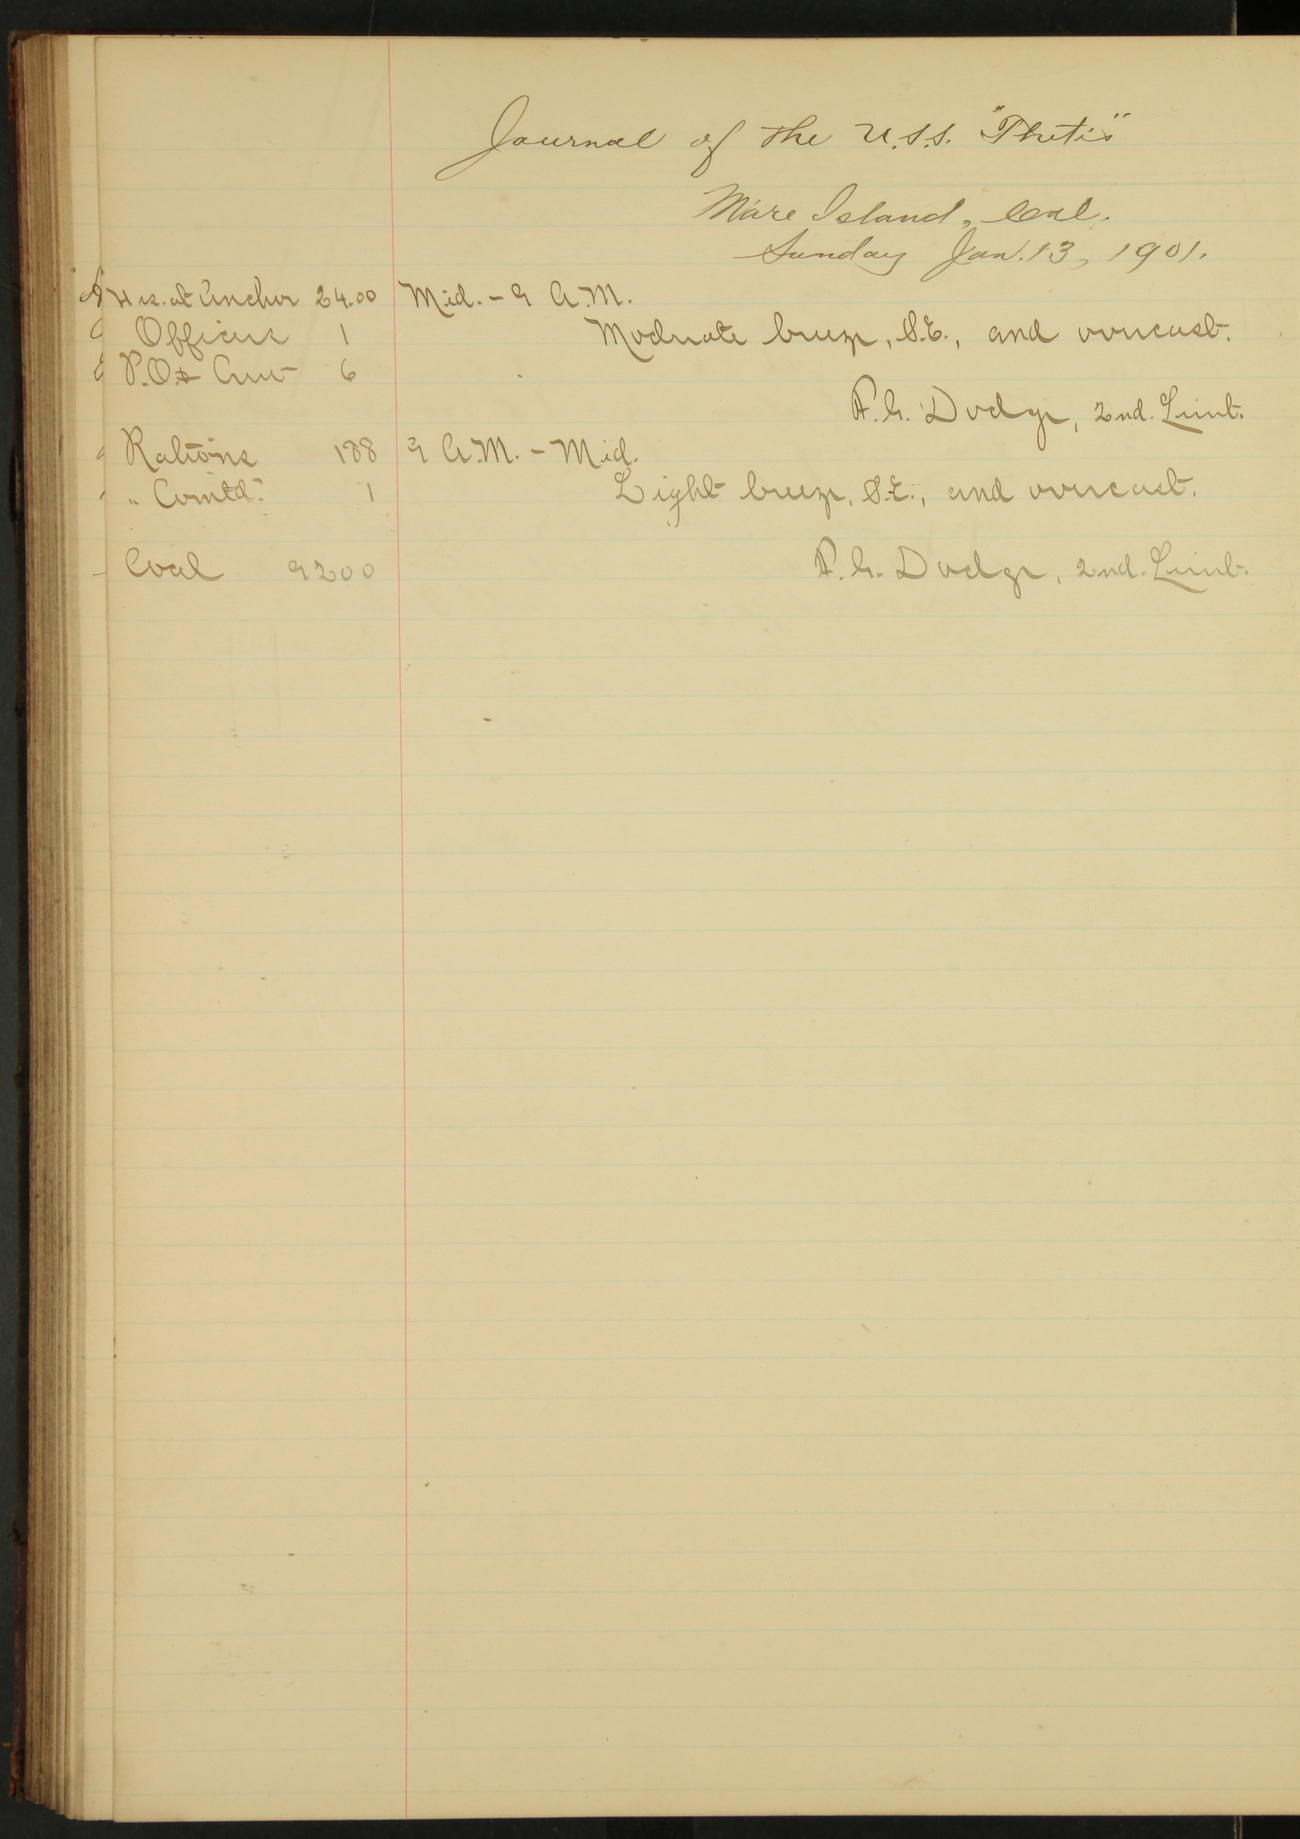 Journal of the U.S.S. "Thetis"
Mare Island, Cal.
Sunday Jan. 13, 1901.
Hrs. at Anchor 24.00
Officers 1
P.O.& Crew 6
Rations 188
" Comtd. 1
Coal 9200
Mid. - 9 A.M.
Moderate breeze, S.E., and overcast.
F.G. Dodge, 2nd. Lieut.
9 A.M. - Mid.
Light breeze, S.E., and overcast.
F.G. Dodge, 2nd. Lieut.